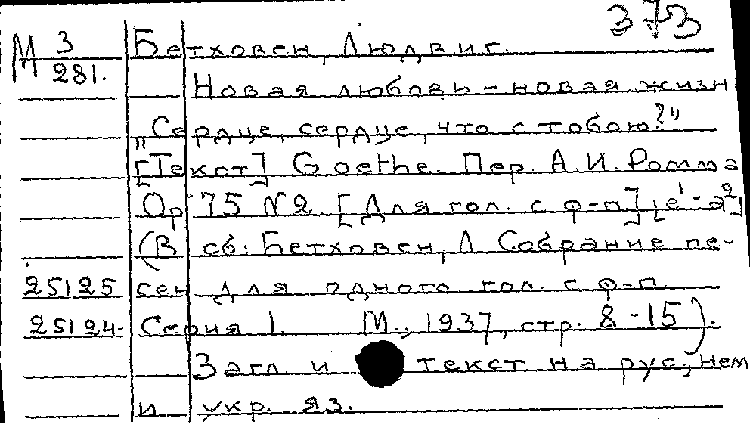 373
М 3/281. Бетховен, Людвиг.
Новая любовь - новая жизн
„Сердце, сердце, что с тобою?"
[Текст] Goethe. Пер. А.И. Ромма
Op 75 N2. [Для гол. с ф-п] [e¹-a²]
(В сб: Бетховен, Л Собрание пе-
25125 сен для одного гол. с ф-п.
25124. Серия 1. М., 1937, стр. 8-15).
Загл и текст на рус, нем
и укр. яз.